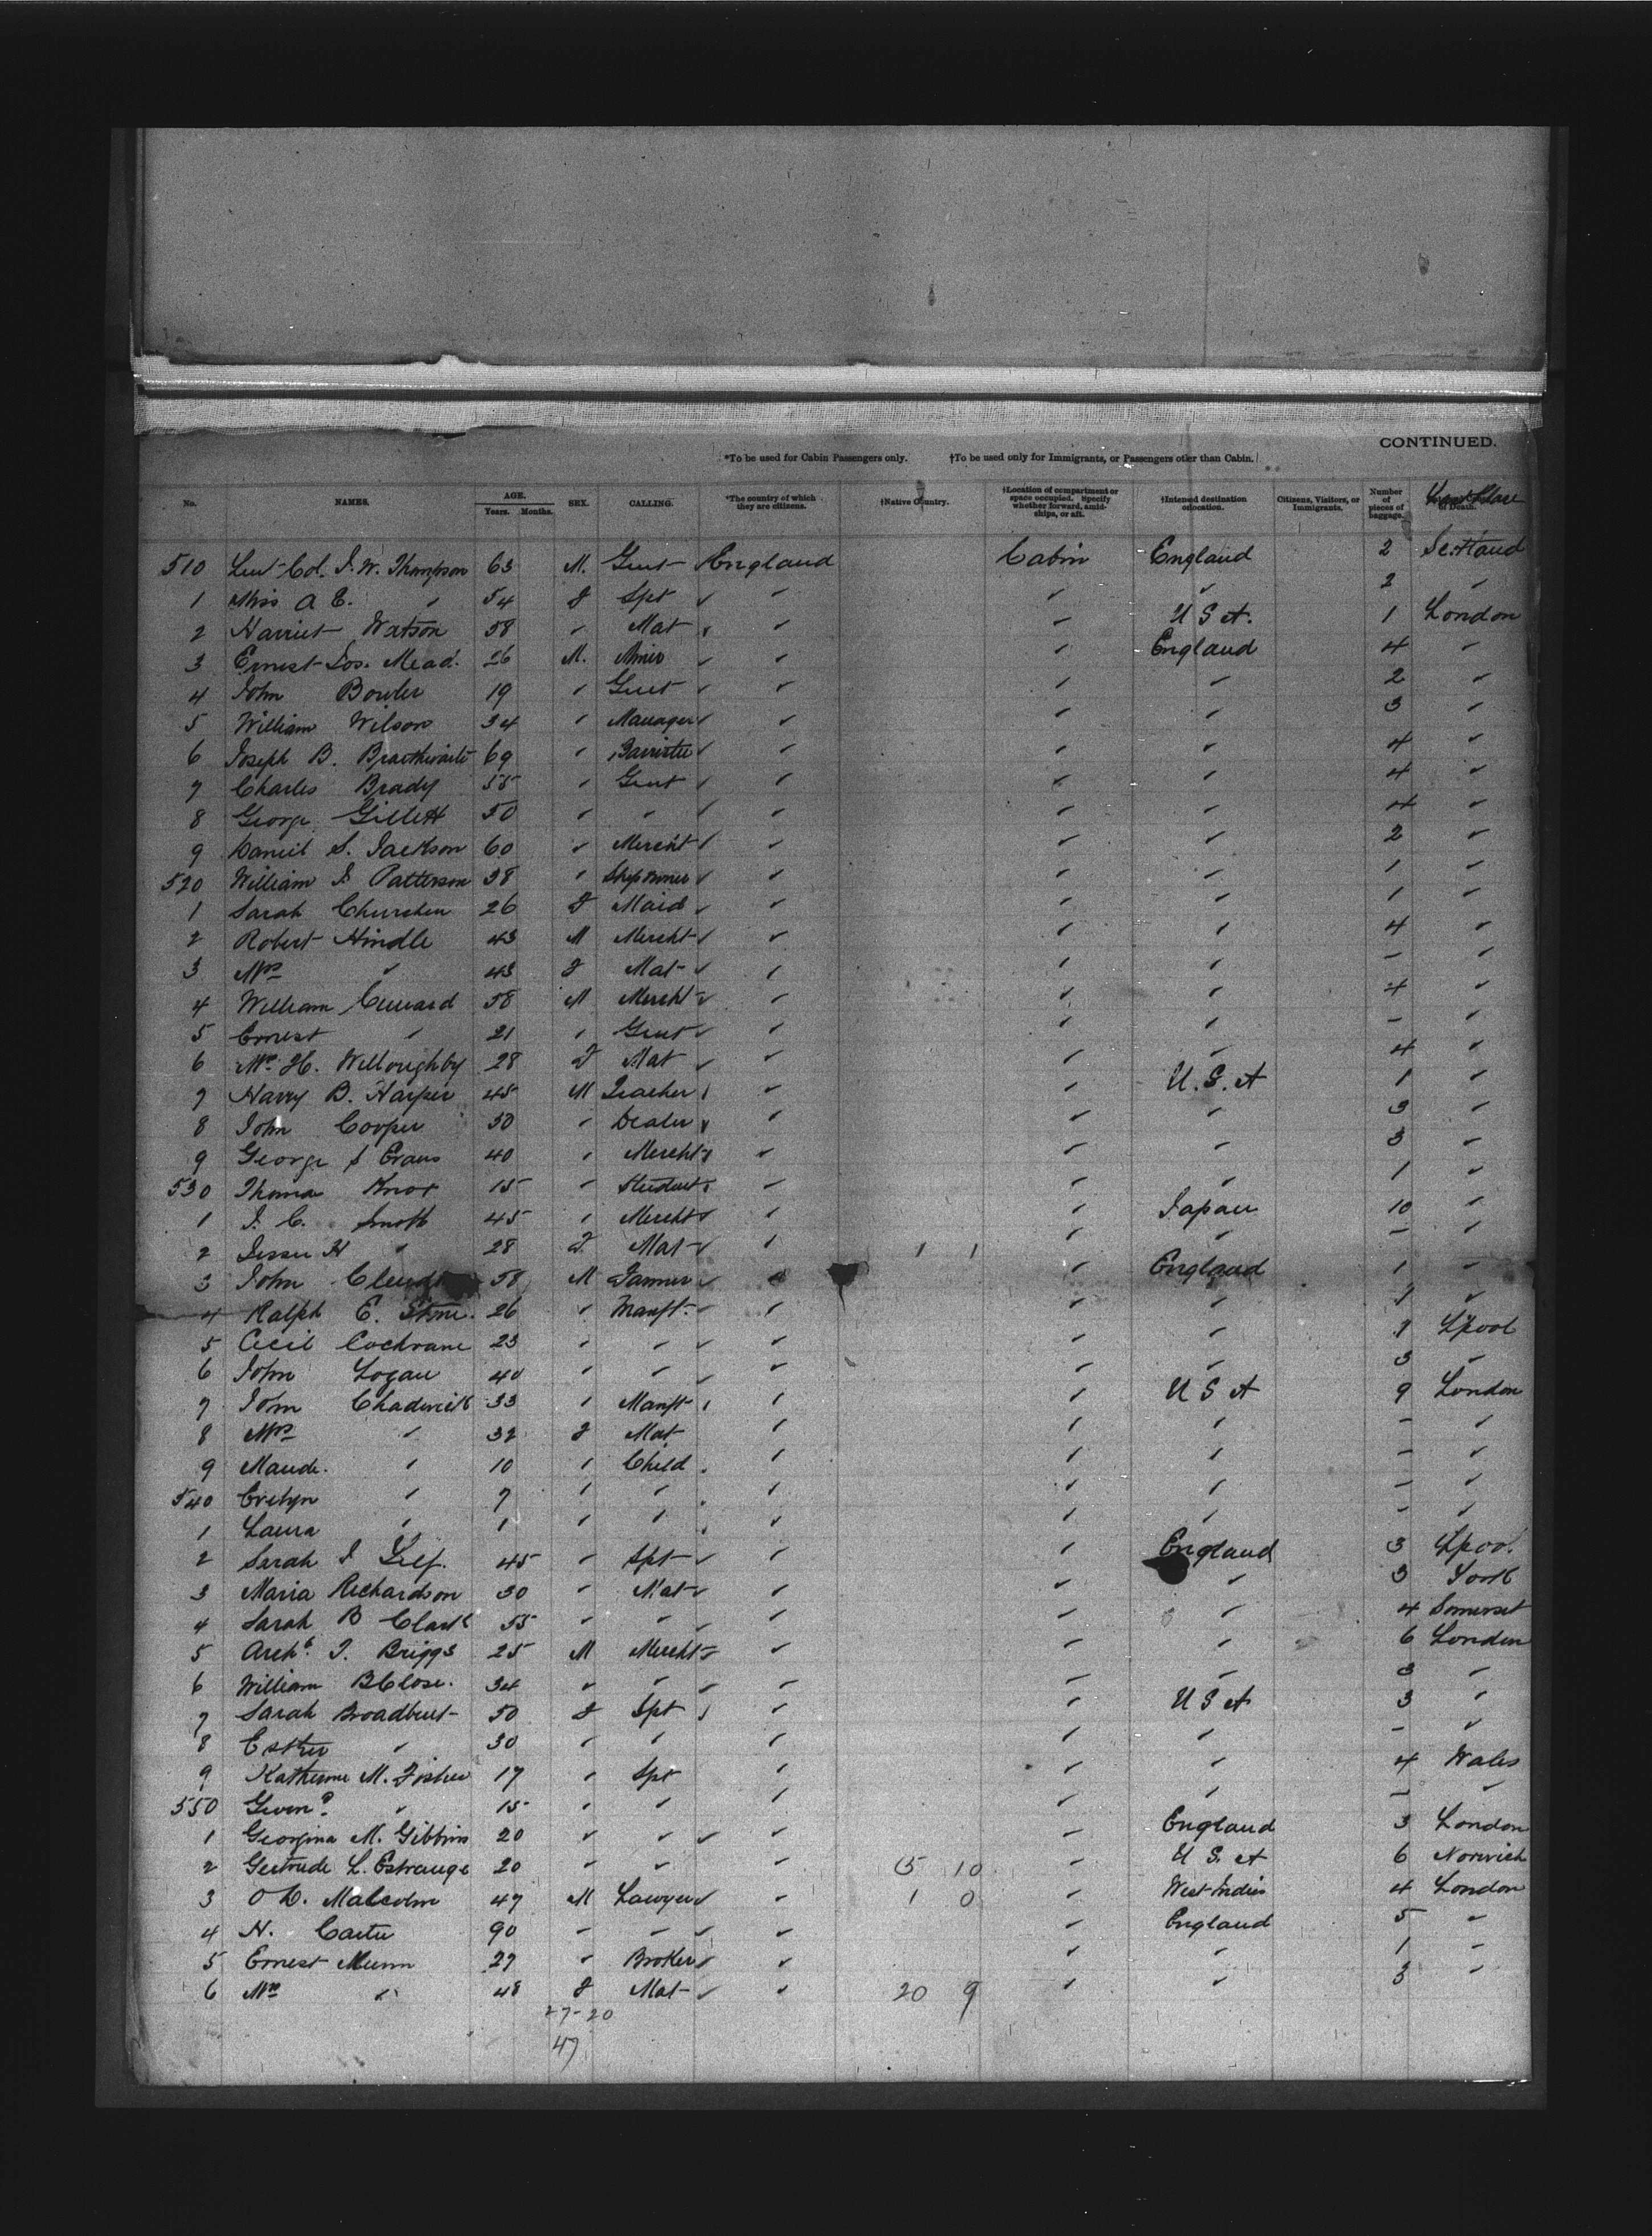 CONTINUED.
*To be used for Cabin Passengers only. †To be used only for Immigrants, or Passengers other than Cabin.
No. NAMES. AGE. Years. Months. SEX. CALLING. *The country of which they are citizens. †Native Country. †Location of compartment or space occupied. Specify whether forward, amidships, or aft. †Intened destination or location. Citizens, Visitors, or Immigrants. Number of pieces of baggage. of Death.
510 Lieut-Col. J. W. Thompson 63 M. Gent England Cabin England 2 Scotland
1 Miss A E. " 54 F Spt " " " " 2 "
2 Harriet Watson 58 " Mat " " U S A. 1 London
3 Ernest Jos. Mead. 26 M. " " England 4 "
4 John Bowler 19 " Gent " " " 2 "
5 William Wilson 34 " Manager " " " 3 "
6 Joseph B. Braithwaite 69 " Barrister " " " 4 "
7 Charles Brady 55 " Gent " " " 4 "
8 George Gillett 50 " " " " " 4 "
9 Daniel S. Jackson 60 " Mercht " " " 2 "
520 William J. Patterson 38 " Shipowner " " " 1 "
1 Sarah 26 F Maid " " " 1 "
2 Robert Hindle 43 M Mercht " " " 4 "
3 Mrs " 43 F Mat " " " - "
4 William Cunard 58 M Mercht " " " 4 "
5 Ernest " 21 " Gent " " " - "
6 Mrs H. Willoughby 28 F Mat " " " 4 "
7 Harry B. Harper 45 M Teacher " " U.S.A 1 "
8 John Cooper 50 " Dealer " " " 3 "
9 George S Evans 40 " Mercht " " " 3 "
530 Thomas Knox 15 " Student " " " 1 "
1 J. C. Smith 45 " Mercht " " Japan 10 "
2 H " 28 F. Mat " 1 1 " " - "
3 John 58 M " " England 1 "
4 Ralph E. Stone. 26 " Manft. " " " 1 "
5 Cecil Cochrane 23 " " " " " 1 L'pool
6 John Logan 40 " " " " " 3 "
7 John Chadwick 33 " Manft " " U S A 9 London
8 Mrs " 32 F Mat " " " - "
9 Maude. " 10 " Child " " " - "
540 Evelyn " 7 " " " " " - "
1 Laura " 1 " " " " " - "
2 Sarah J 45 " Spt " " England 3 L'pool.
3 Maria Richardson 30 " Mat " " " 3 York
4 Sarah B Clark 55 " " " " " 4 Somerset
5 Archd. T. Briggs 25 M Mercht " " " 6 London
6 William B Close. 34 " " " " " 3 "
7 Sarah Broadbent 50 F Spt " " U S A 3 "
8 Esther " 30 " " " " " - "
9 Katherine M. Fisher 17 " Spt " " " 4 Wales
550 " 15 " " " " " - "
1 Georgina M. Gibbins 20 " " " " England 3 London
2 Gertrude L. Estrange 20 " " " 15 10 " U S. A 6 Norwich
3 O. D. Malcolm 47 M Lawyer " 1 0 " West Indies 4 London
4 H. Carter 90 " " " " England 5 "
5 Ernest Munn 27 " Broker " " " 1 "
6 Mrs " 48 F Mat " 20 9 " " 3 "
27-20
47